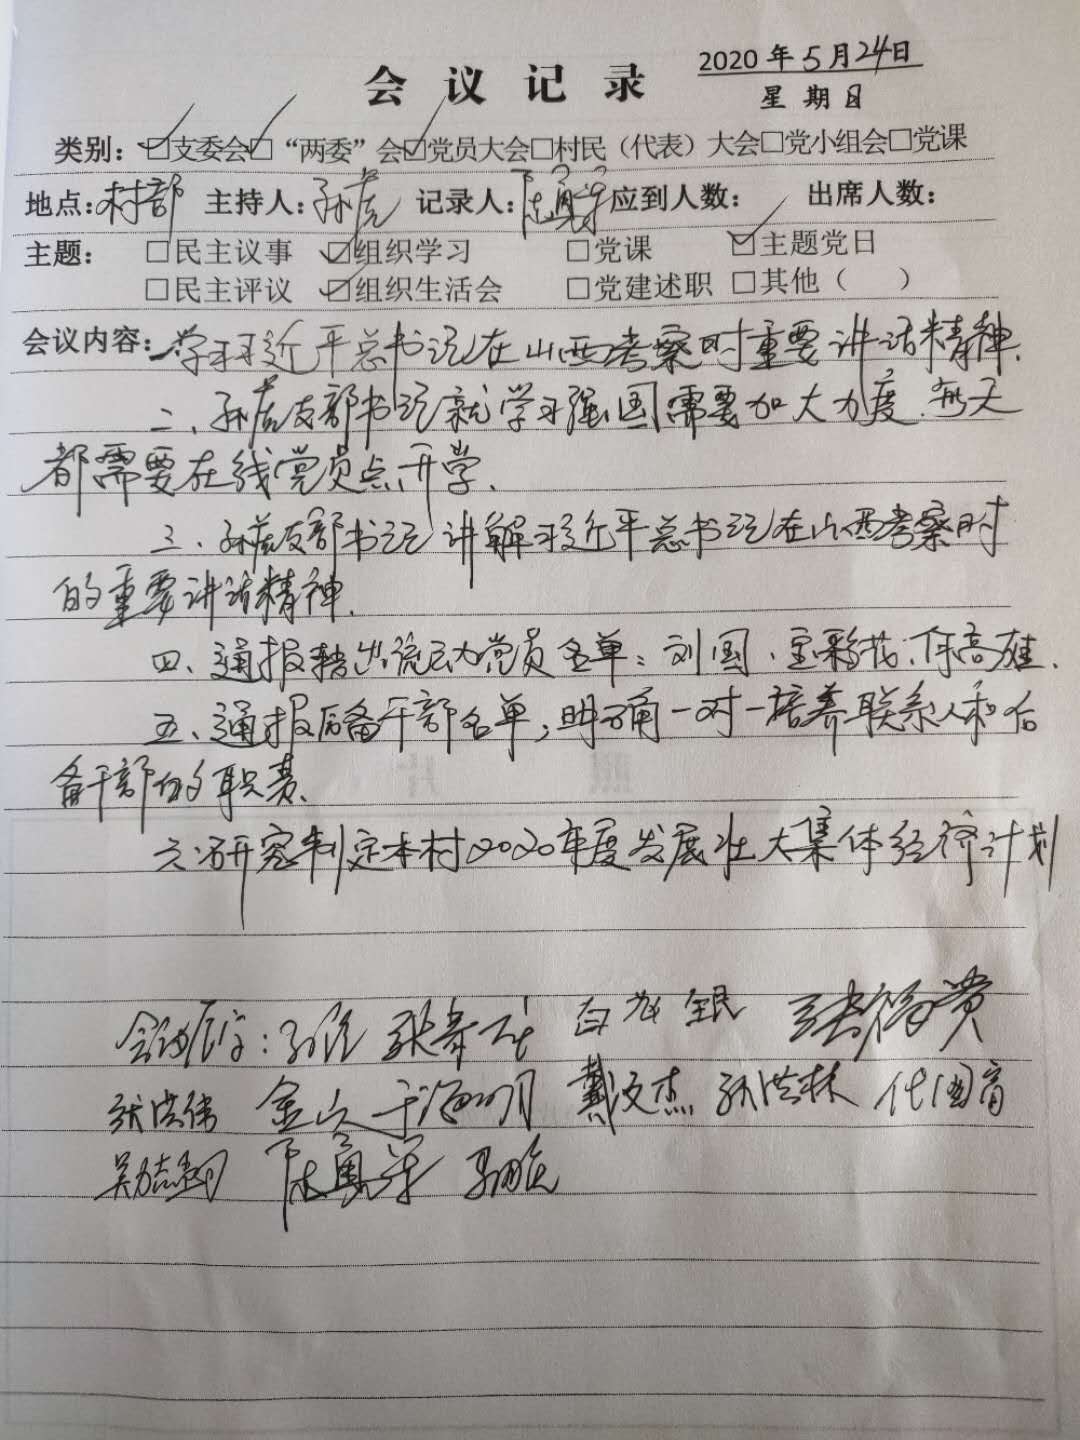 会议记录
2020年5月24日
星期日
类别：☑支委会☑“两委”会☑党员大会□村民（代表）大会□党小组会□党课
地点：村部 主持人：孙虎 记录人：陈勇军 应到人数： 出席人数：
主题： □民主议事 ☑组织学习 □党课 ☑主题党日
□民主评议 ☑组织生活会 □党建述职 □其他（ ）
会议内容：一、学习习近平总书记在山西考察时重要讲话精神.
二、孙虎支部书记就学习强国需要加大力度.每天
都需要在线党员点开学.
三、孙虎支部书记讲解习近平总书记在山西考察时
的重要讲话精神.
四、通报转出流动党员名单：刘国、
五、通报后备干部名单；明确一对一培养联系人和后
备干部的职责.
六.研究制定本村2020年度发展壮大集体经济计划
白龙银
张洪伟 金山 于海明 戴文杰 孙洪林 代国富
陈勇军